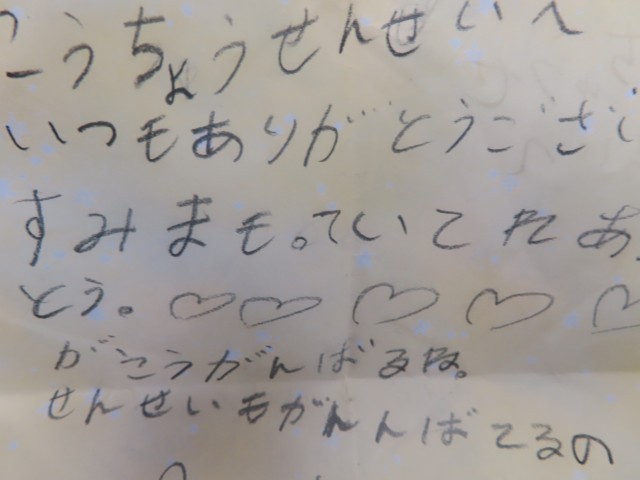 こうちょうせんせいへ
いつもありがとうござい
すみまもっていてたあ
とう。
がこうがんばるね。
せんせいもがんんばてるの